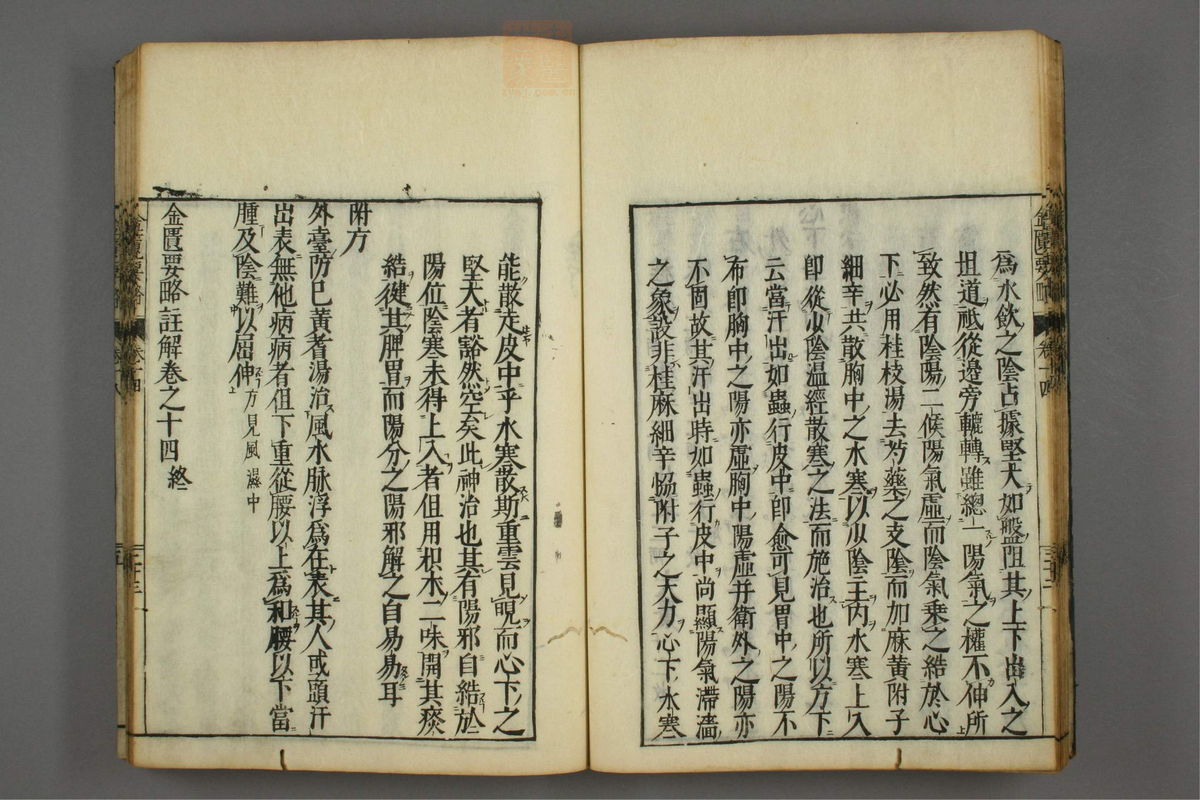 為水飲之陰占據堅大如盤阻其上下出入之
坦道祗從邊旁轆轉雖總一陽氣之權不伸所
致然有陰陽二候陽氣虛而陰氣乘之結於心
下必用桂枝湯去芍藥之支陰而加麻黃附子
細辛共散胸中之水寒以少陰主內水寒上入
即從少陰溫經散寒之法而施治也所以方下
云當汗出如蟲行皮中即愈可見胃中之陽不
布即胸中之陽亦虛胸中陽虛并衛外之陽亦
不固故其汗出時如蟲行皮中尚顯陽氣滯濇
之象設非桂麻細辛恊附子之大力心下水寒
能散走皮中乎水寒散斯重雲見晛而心下之
堅大者豁然空矣此神治也其有陽邪自結於
陽位陰寒未得上入者但用枳朮二味開其痰
結健其脾胃而陽分之陽邪解之自易易耳
附方
外臺防巳黃耆湯治風水脉浮為在表其人或頭汗
出表無他病病者但下重從腰以上為和腰以下當
腫及陰難以屈伸方見風濕中
金匱要略註解卷之十四終